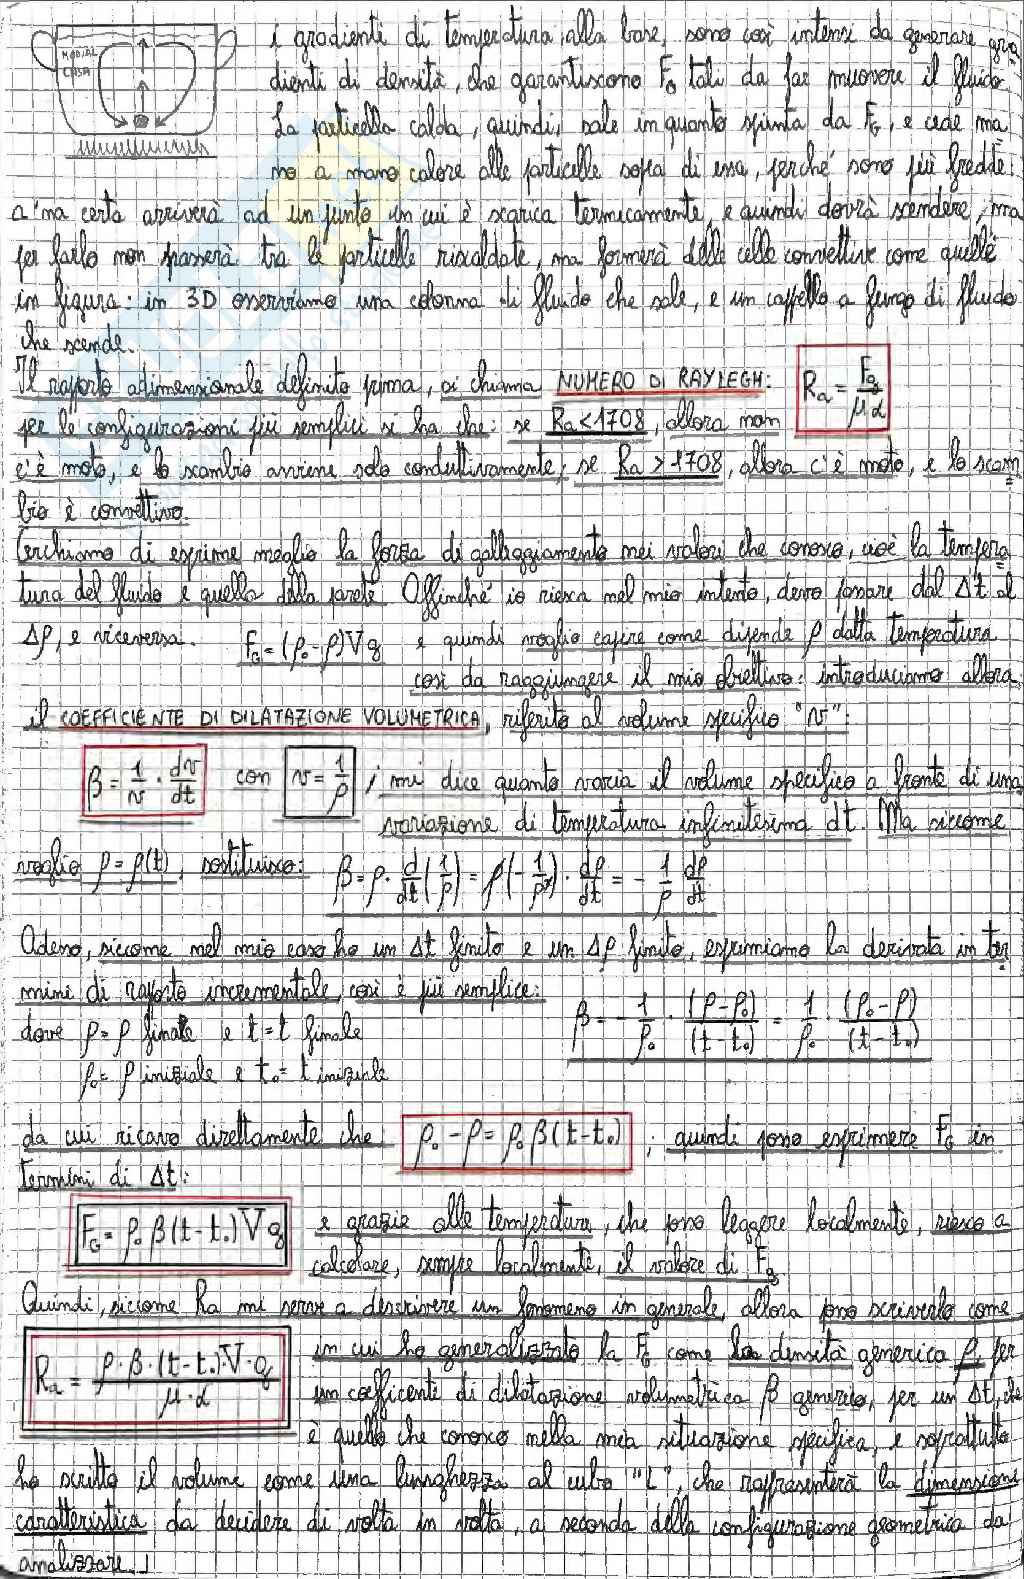 MODULAL
CASA
i gradienti di temperatura, alla base, sono così intensi da generare gra
dienti di densità, che garantiscono FG tali da far muovere il fluido.
La particella calda, quindi, sale in quanto spinta da FG, e cede ma
no a mano calore alle particelle sopra di essa, perché sono più fredde:
a 'na certa arriverà ad un punto in cui è scarica termicamente, e quindi dovrà scendere, ma
per farlo non passerà tra le particelle riscaldate, ma formerà delle celle convettive come quelle
in figura: in 3D osserviamo una colonna di fluido che sale, e un cappello a fungo di fluido
che scende.
Il rapporto adimensionale definito prima, si chiama NUMERO DI RAYLEGH: Ra = Fg / μα
per le configurazioni più semplici si ha che: se Ra<1708, allora non
c'è moto, e lo scambio avviene solo conduttivamente; se Ra > 1708, allora c'è moto, e lo scam
bio è convettivo.
Cerchiamo di esprime meglio la forza di galleggiamento nei valori che conosco, cioè la tempera
tura del fluido e quella della parete. Affinché io riesca nel mio intento, devo passare dal Δt al
Δρ, e viceversa. FG = (ρ₀-ρ)Vg e quindi voglio capire come dipende ρ dalla temperatura
così da raggiungere il mio obiettivo: introduciamo allora
il COEFFICIENTE DI DILATAZIONE VOLUMETRICA, riferito al volume specifico "v":
β = 1/v · dv/dt con v = 1/ρ ; mi dice quanto varia il volume specifico a fronte di una
variazione di temperatura infinitesima dt. Ma siccome
voglio ρ = ρ(t), sostituisco: β = ρ · d/dt (1/ρ) = ρ (-1/ρ²) · dρ/dt = - 1/ρ dρ/dt
Adesso, siccome nel mio caso ho un Δt finito e un Δρ finito, esprimiamo la derivata in ter
mini di rapporto incrementale, così è più semplice: β = - 1/ρ₀ · (ρ-ρ₀)/(t-t₀) = 1/ρ₀ · (ρ₀-ρ)/(t-t₀)
dove ρ = ρ finale e t = t finale
ρ₀ = ρ iniziale e t₀ = t iniziale
da cui ricavo direttamente che ρ₀ - ρ = ρ₀ β (t-t₀) ; quindi posso esprimere FG in
termini di Δt:
FG = ρ₀ β (t-t₀) V g e grazie alle temperature, che posso leggere localmente, riesco a
calcolare, sempre localmente, il valore di Fg.
Quindi, siccome Ra mi serve a descrivere un fenomeno in generale, allora posso scriverlo come
Ra = ρ·β·(t-t₀)·V·g / μ·α in cui ho generalizzato la FG come la densità generica ρ, per
un coefficente di dilatazione volumetrica β generico, per un Δt, che
è quello che conosco nella mia situazione specifica, e soprattutto
ho scritto il volume come una lunghezza al cubo "L", che rappresenterà la dimensione
caratteristica da decidere di volta in volta, a seconda della configurazione geometrica da
analizzare.